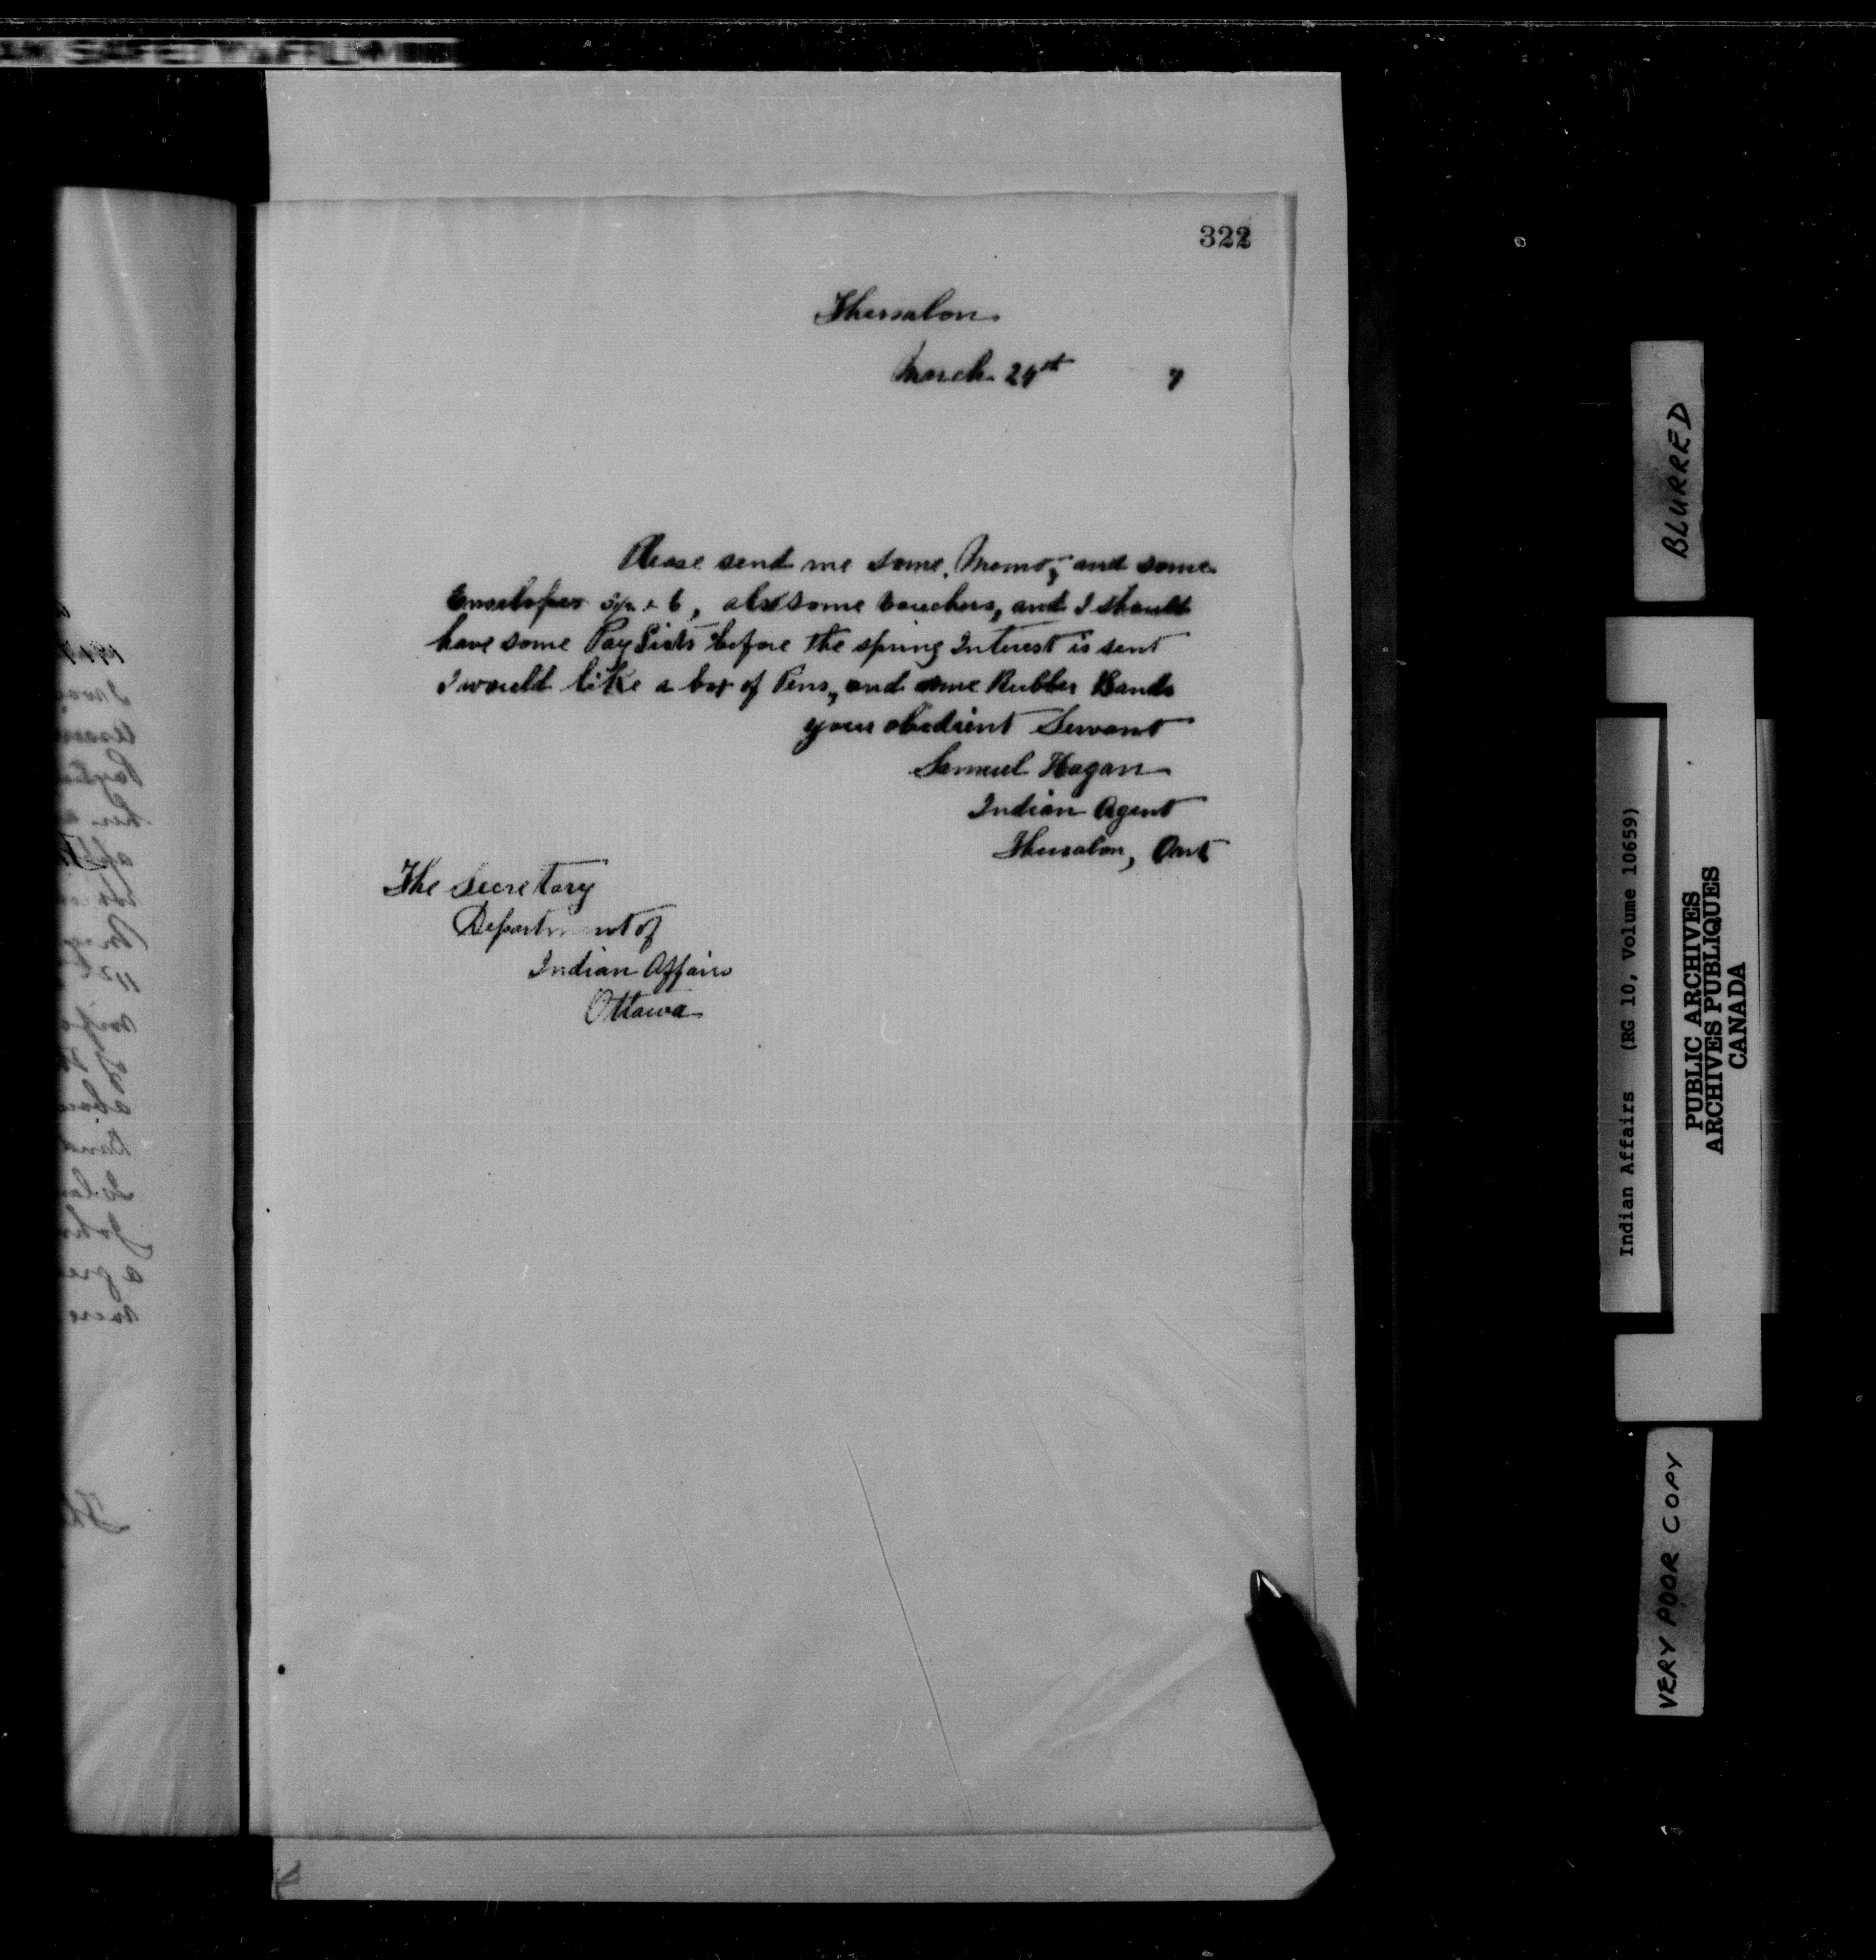 322
Thessalon
March 24th 7
Please send me some Memo, and some
Envelopes 6, also some vouchers, and I should
have some Pay Lists before the spring Interest is sent
I would like a box of Pens, and some Rubber Bands
your obedient Servant
Samuel Hagan
Indian Agent
Thessalon, Ont
The Secretary
Department of
Indian Affairs
Ottawa
BLURRED
Indian Affairs (RG 10, Volume 10659)
PUBLIC ARCHIVES
ARCHIVES PUBLIQUES
CANADA
VERY POOR COPY